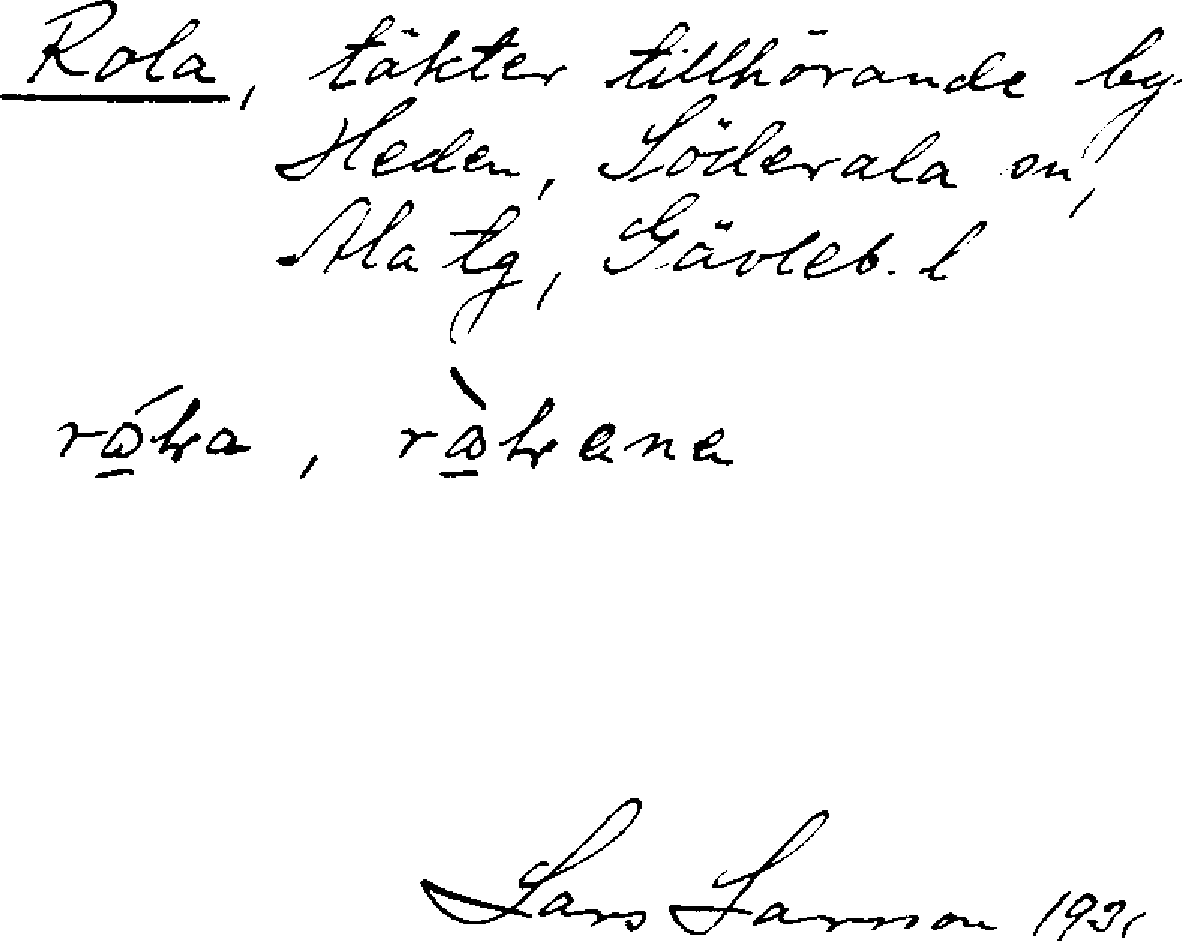 Rola, täkter tillhörande by
Heden, Söderala sn,
Ala tg, Gävleb. l
Lars Larsson 1931